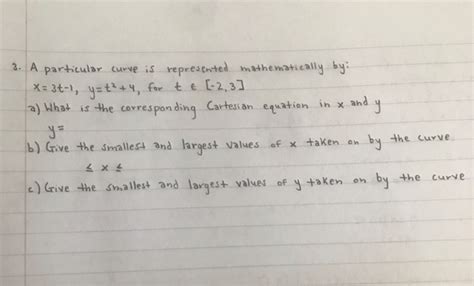 3. A particular curve is represented mathematically by:
x=3t-1, y=t²+4, for t ∈ [-2,3]
a) What is the corresponding Cartesian equation in x and y
y=
b) Give the smallest and largest values of x taken on by the curve
≤ x ≤
c) Give the smallest and largest values of y taken on by the curve